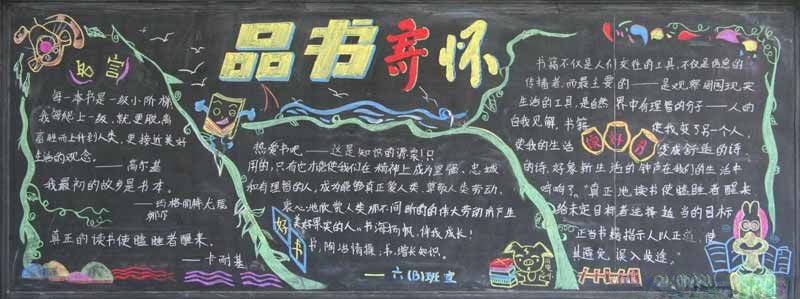 品书寄怀
名言
每一本书是一级小阶梯,
我每爬上一级,就更脱离
畜牲而上升到人类,更接近美好
生活的观念。
——高尔基
我最初的故乡是书本。
——玛格丽特尤瑟
真正的读书使瞌睡者醒来。
——卡耐基
热爱书吧——这是知识的源泉!只
有它才能使我们在精神上成为坚强、忠诚
和有理智的人,成为能够真正爱人类、尊敬人类劳动、
衷心地欣赏人类那不间断的伟大劳动所产生
美好果实的人。书海扬帆,伴我成长!
书,陶冶情操;书,增长知识。
好书
一六(3)班宣
书籍不仅是人们交往的工具,不仅是信息的
传播者,而最主要的——是观察周围现实
生活的工具,是自然界中有理智的分子——人的
自我见解,书籍
读好书
使我变了另一个人,
使我的生活
变成舒适的诗
的诗,好象新生活的钟声在我们的生活中
响响了。真正地读书使瞌睡者醒来
给未定目标者选择适当的目标
正当书籍指示人以正道,使
其避免误入歧途。